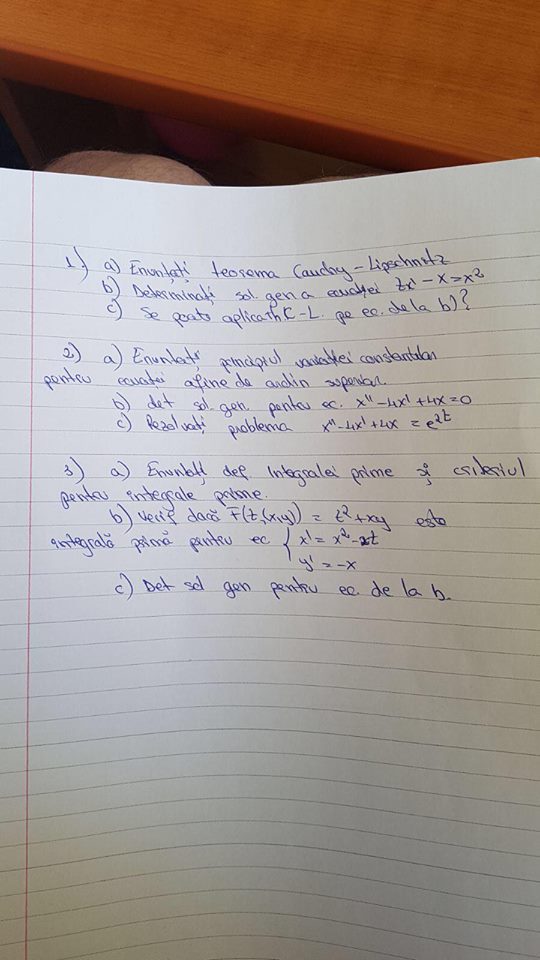 1.) a) Enunțați teorema Cauchy-Lipschitz
b) Determinați sol. gen a ecuației tx' - x = x²
c) Se poate aplica th C-L. pe ec. de la b)?
2) a) Enunțați principiul variației constantelor
pentru ecuații afine de ordin superior.
b) det sol. gen. pentru ec. x'' - 4x' + 4x = 0
c) Rezolvați problema x'' - 4x' + 4x = e^2t
3) a) Enunțați def integralei prime și criteriul
pentru integrale prime.
b) Verif dacă F(t,(x,y)) = t² + xy este
integrală primă pentru ec { x' = x² - t
y' = -x
c) Det sol gen pentru ec. de la b.